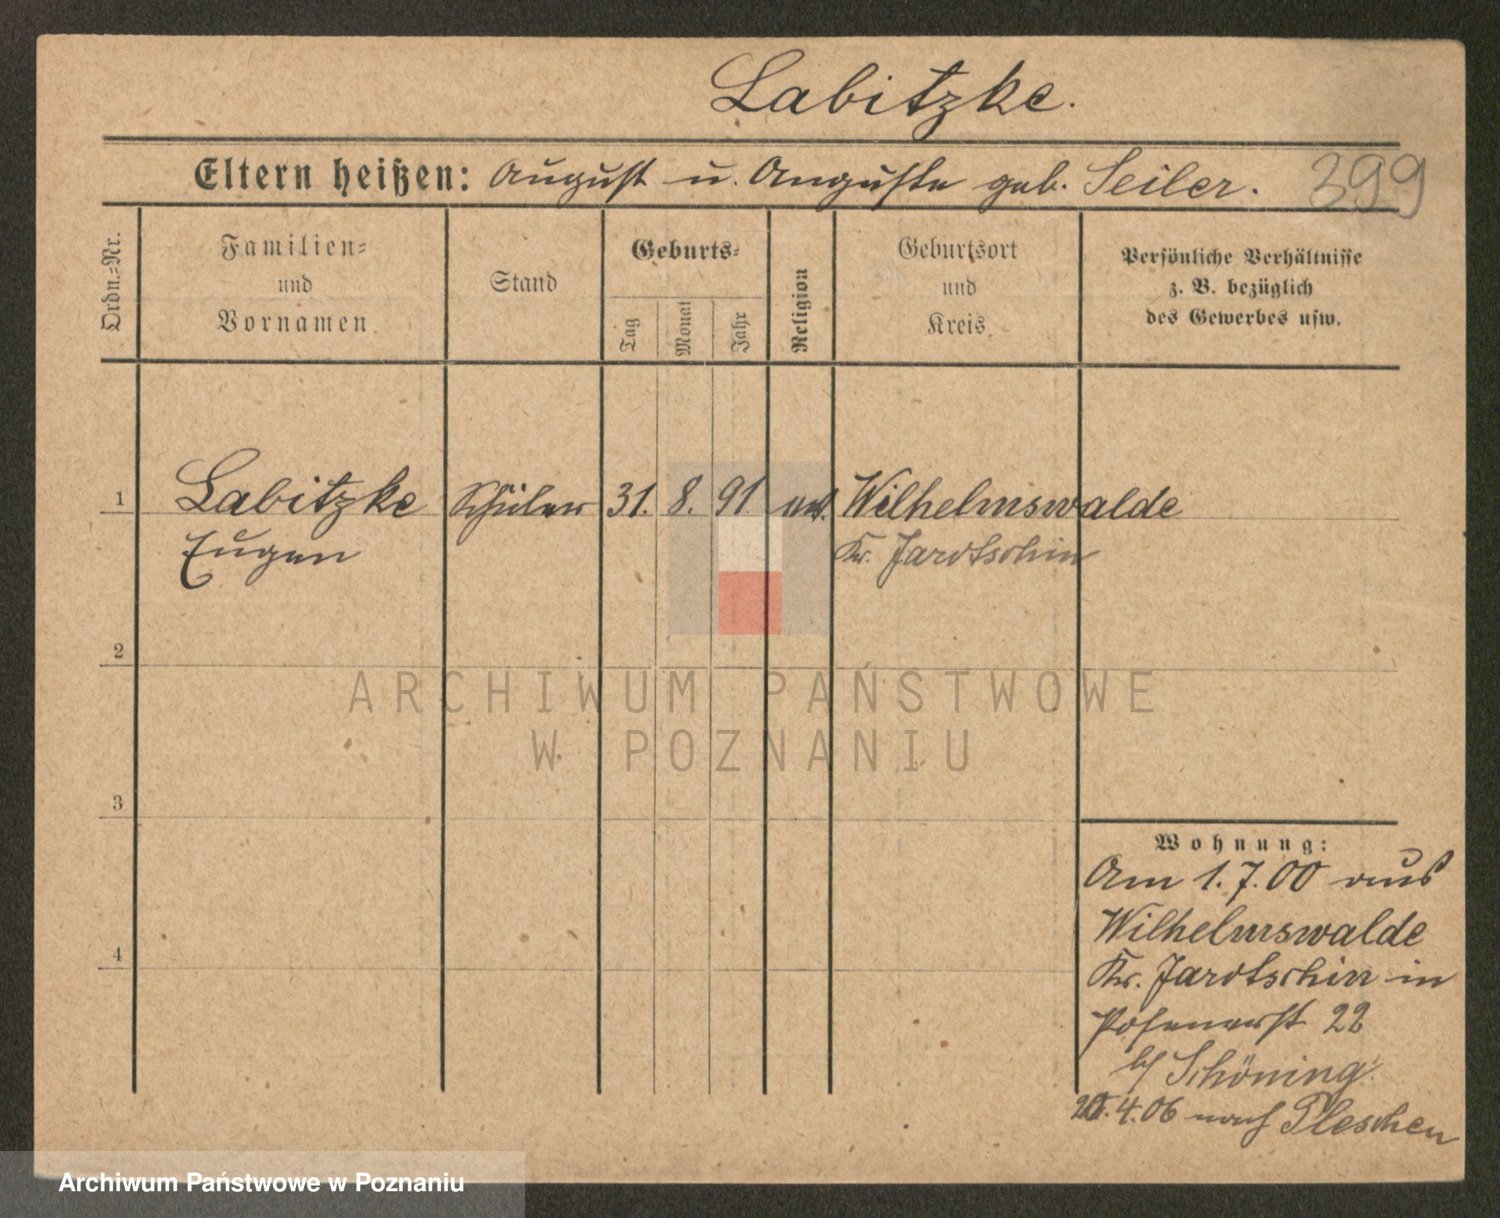 Labitzke.
Eltern heißen: August u. Auguste geb. Seiler. 399
Ordn.=Nr.
Familien=
und
Vornamen.
Stand
Geburts=
Tag
Monat
Jahr
Religion
Geburtsort
und
Kreis.
Persönliche Verhältnisse
z. B. bezüglich
des Gewerbes usw.
1 Labitzke Schüler 31. 8. 91 Wilhelmswalde
Eugen Kr. Jarotschin
2
3
4
ARCHIWUM PAŃSTWOWE
W POZNANIU
Wohnung:
Am 1.7.00 aus
Wilhelmswalde
Kr. Jarotschin in
Posenerst 22
b/ Schöning.
4.06 nach Pleschen
Archiwum Państwowe w Poznaniu